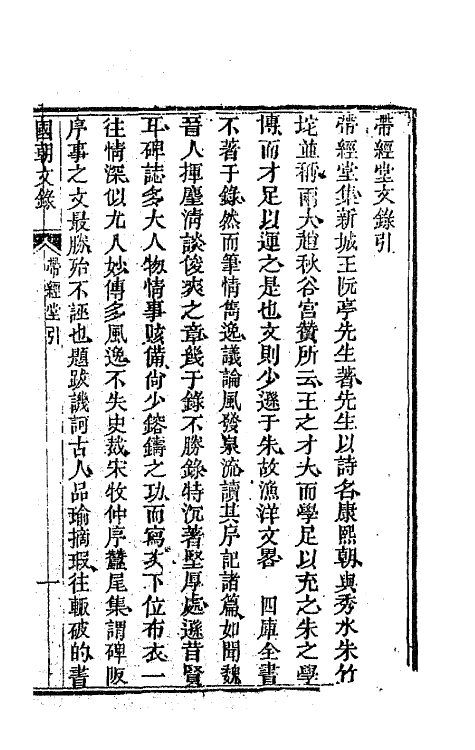 帶經堂文錄引
帶經堂集新城王阮亭先生著先生以詩名康熙朝與秀水朱竹
垞並稱兩大趙秋谷宮贊所云王之才大而學足以充之朱之學
博而才足以運之是也文則少遜于朱故漁洋文畧　四庫全書
不著于錄然而筆情雋逸議論風發泉流讀其序記諸篇如聞魏
晉人揮麈清談俊爽之章幾于錄不勝錄特沉著堅厚處遜昔賢
耳碑誌多大人物情事賅備尙少鎔鑄之功而寫天下位布衣一
往情深似尤人妙傳多風逸不失史裁宋牧仲序蠶尾集謂碑版
序事之文最勝殆不誣也題跋譏訶古人品瑜摘瑕往輒破的書
國朝文錄　帶經堂引　一